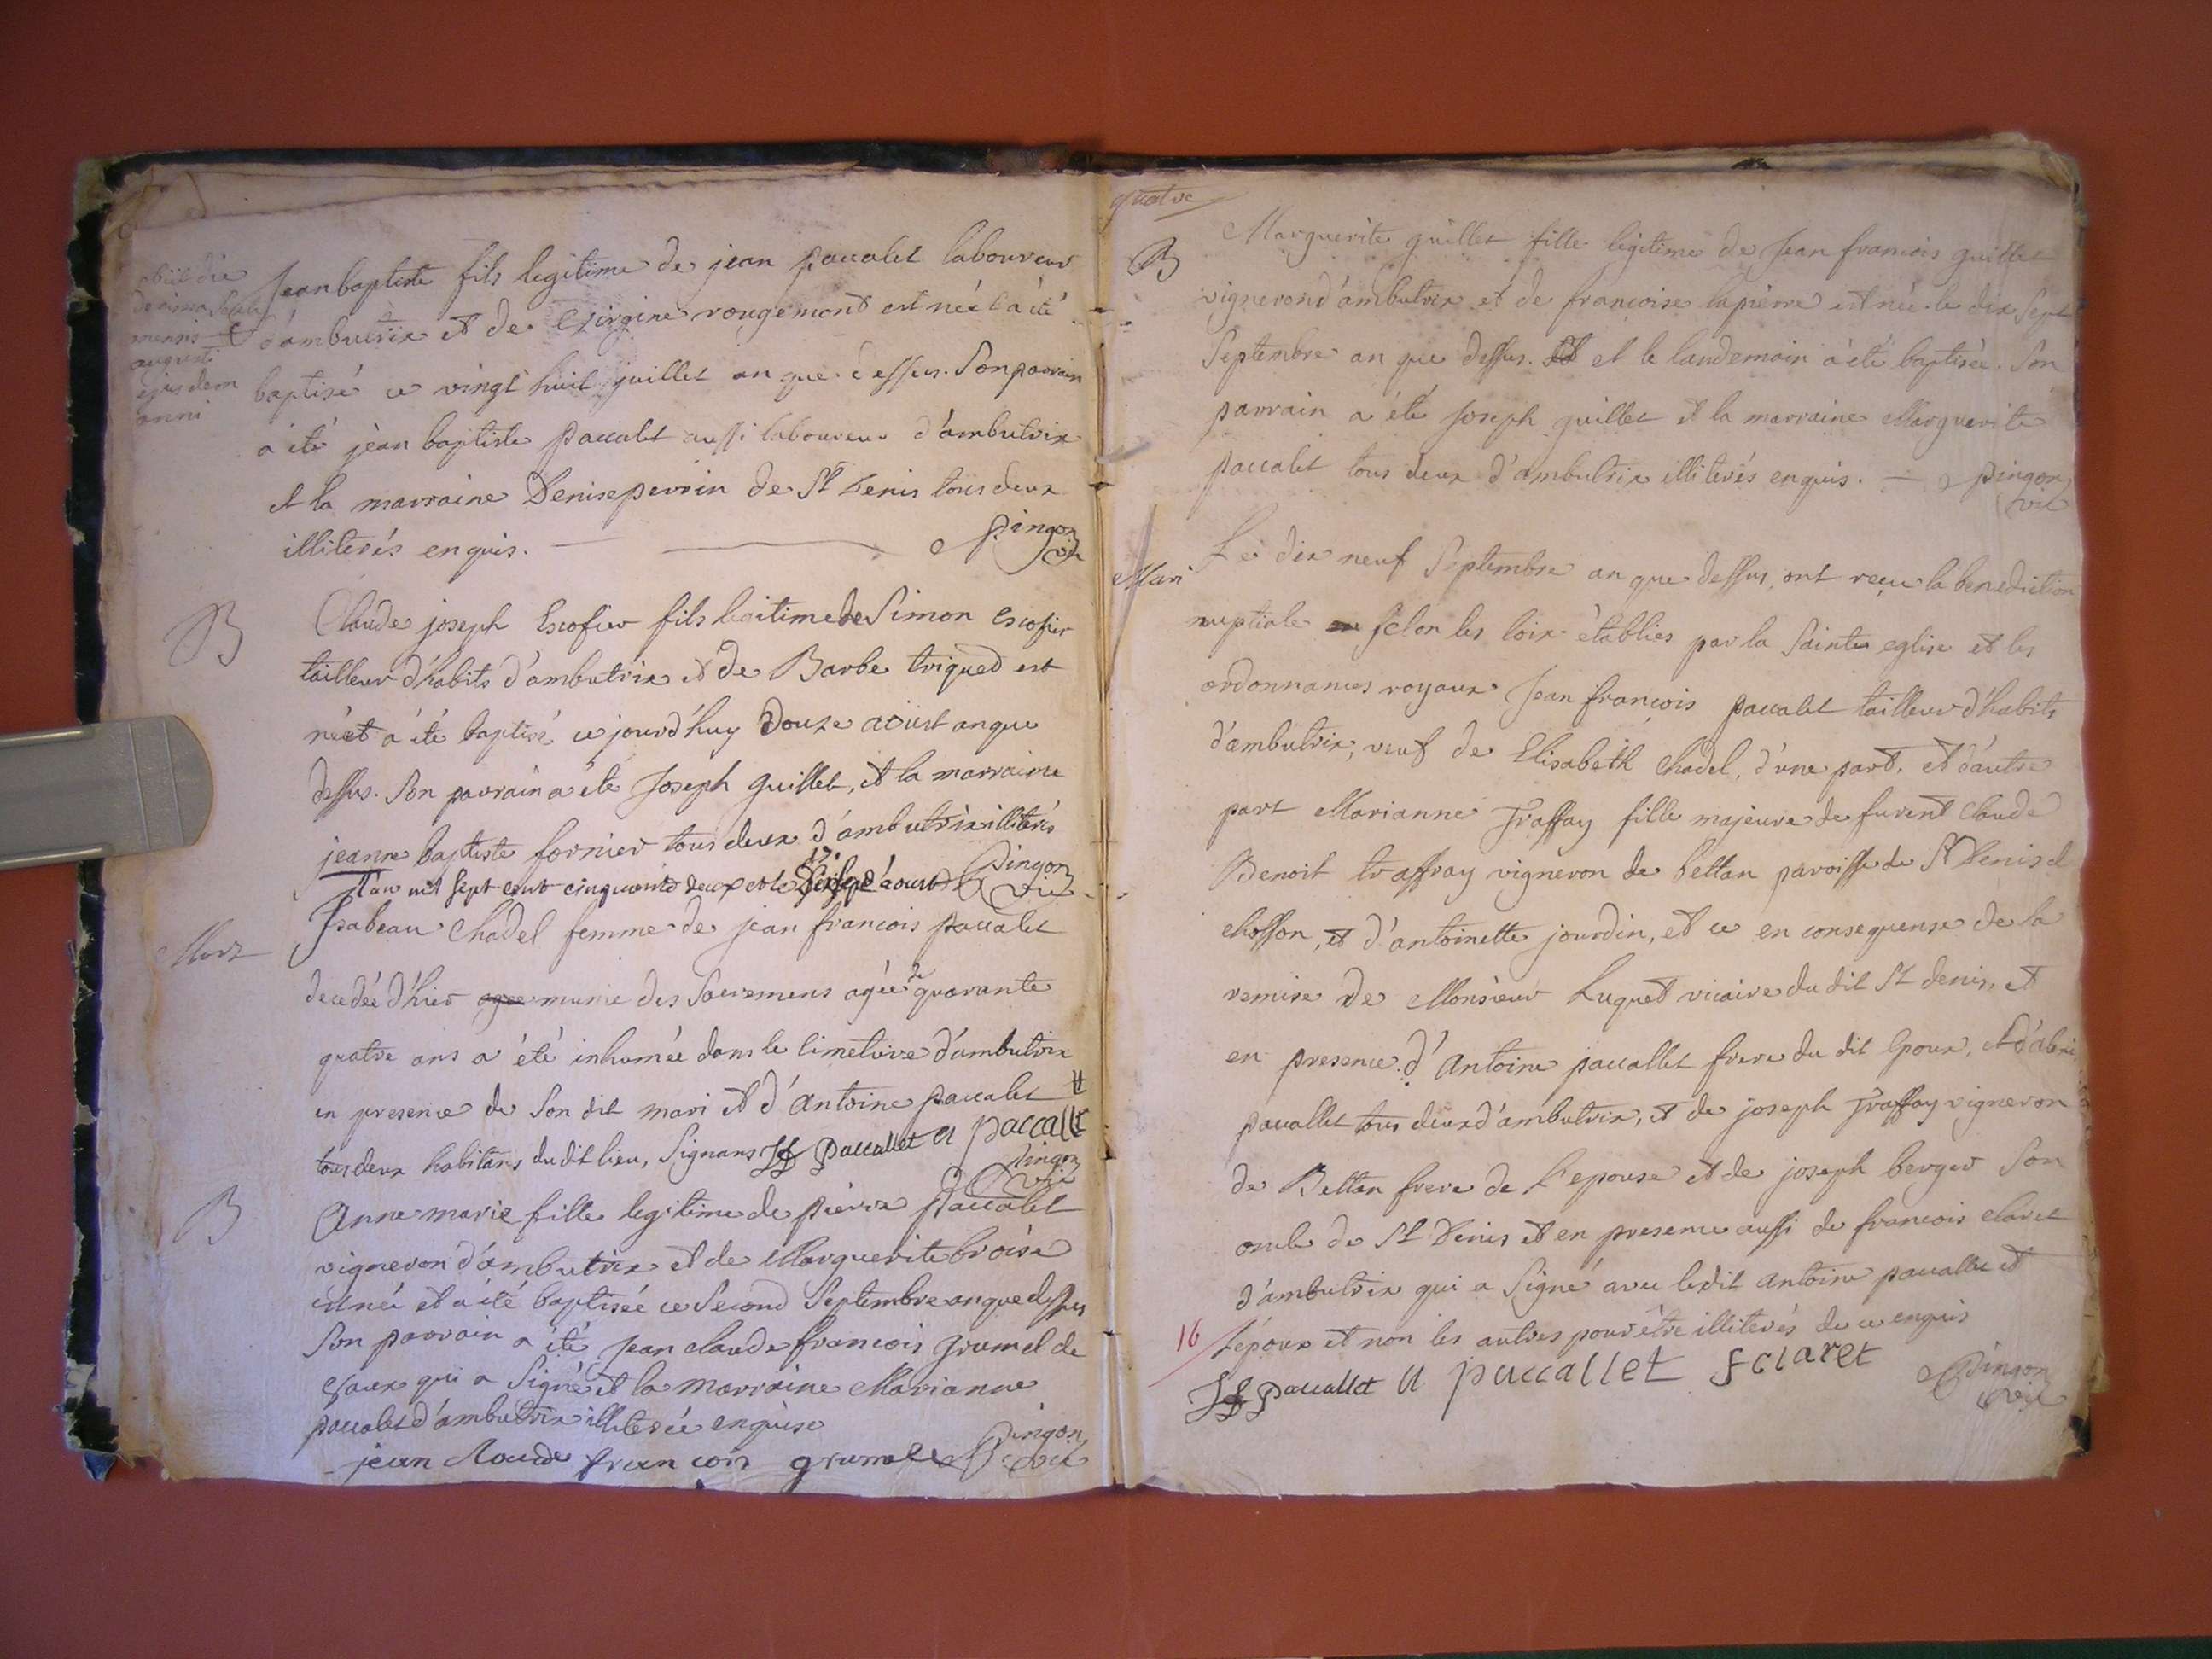 obiit die
decima
mensis
augusti
ejusdem
anni
Jean baptiste fils legitime de jean paccalet laboureur
d'ambutrix et de rougemont est née &a été
baptisé ce vingt huit juillet an que dessus. Son parrain
a été jean baptiste paccalet aussi laboureur d'ambutrix
et la marraine Denise perrin de St Denis tous deux
illiterés enquis. pingon vic
B
Claude joseph Escofier fils legitime de Simon Escofier
tailleur d'habits d'ambutrix et de Barbe triqued est
né et a été baptisé ce jourd'huy douze aôust an que
dessus. Son parrain a été Joseph guillet, et la marraine
jeanne baptiste fornier tous deux d'ambutrix illiterés
pingon vic
L'an mil sept cent cinquante deux et le 17 d'aoust
Mort
Isabeau Chadel femme de jean francois paccalet
decedée d'hier agee munie des Sacremens agée de quarante
quatre ans a été inhumée dans le cimetiere d'ambutrix
en presence de Son dit mari et d'Antoine paccalet
tous deux habitans du dit lieu, Signans Jf paccallet a paccallet
pingon vic
B
Anne marie fille legitime de pierre paccalet
vigneron d'ambutrix et de Marguerite broise
est née et a été baptisée ce Second Septembre an que dessus
Son parrain a été Jean claude francois grumel de
qui a Signé et la marraine Marianne
paccalet d'ambutrix illiterée enquise
jean Claude francois grumel pingon vic
quatre
B
Marguerite guillet fille legitime de Jean francois guillet
vigneron d'ambutrix et de francoise lapierre est née le dix Sept
Septembre an que dessus. Et et le landemain a été baptisée. Son
parrain a été Joseph guillet et la marraine Marguerite
paccalet tous deux d'ambutrix illiterés enquis. pingon vic
Mari
Le dix neuf Septembre an que dessus, ont reçu la benediction
nuptiale selon les loix établies par la Sainte eglise et les
ordonnances royaux Jean francois paccalet tailleur d'habits
d'ambutrix, veuf de Elisabeth Chadel, d'une part, et d'autre
part Marianne Traffay fille majeure de furent Claude
Benoit traffay vigneron de bettan paroisse de St Denis
chosson, et d'antoinette jourdin, et ce en consequense de la
remise de Monsieur Luquet vicaire du dit St denis, et
en presence d'Antoine paccallet frere du dit Epoux,
paccallet tous deux d'ambutrix, et de joseph Traffay vigneron
de Bettan frere de l'epouse et de joseph berger Son
oncle de St Denis et en presence aussi de francois claret
d'ambutrix qui a Signé avec ledit Antoine paccallet et
16 l'époux et non les autres pour être illiterés de ce enquis
Jf paccallet a paccallet f claret pingon vic